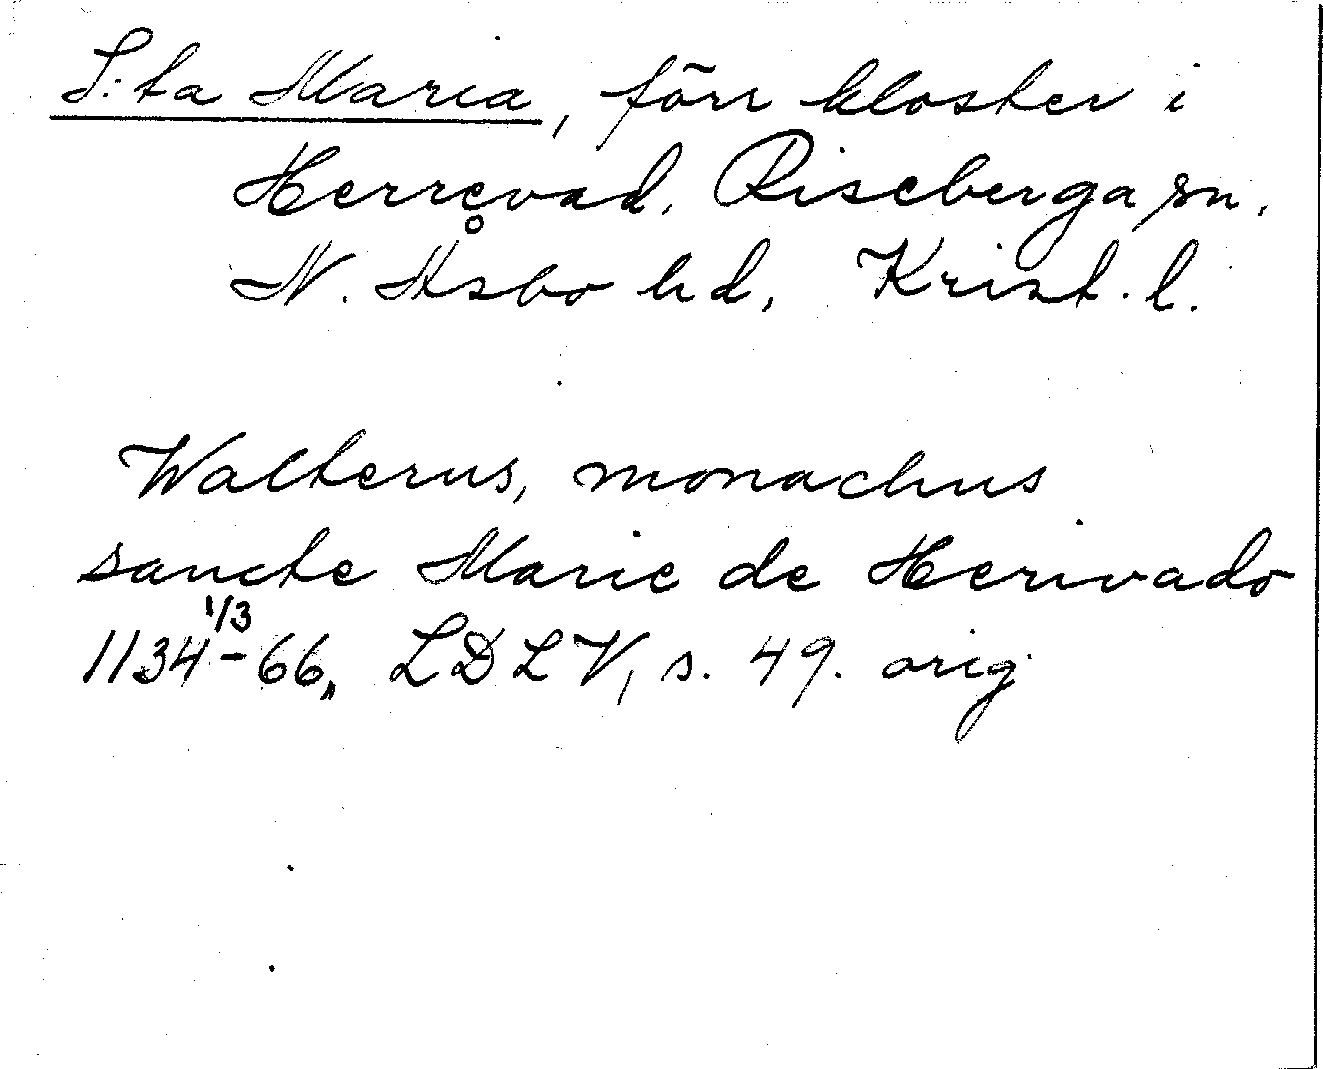 S:ta Maria, förr kloster i
Herrevad, Riseberga sn,
N. Åsbo hd, Krist. l.
Walterus, monachus
sancte Marie de Herivado
1134 1/3 - 66, LDLV, s. 49. orig